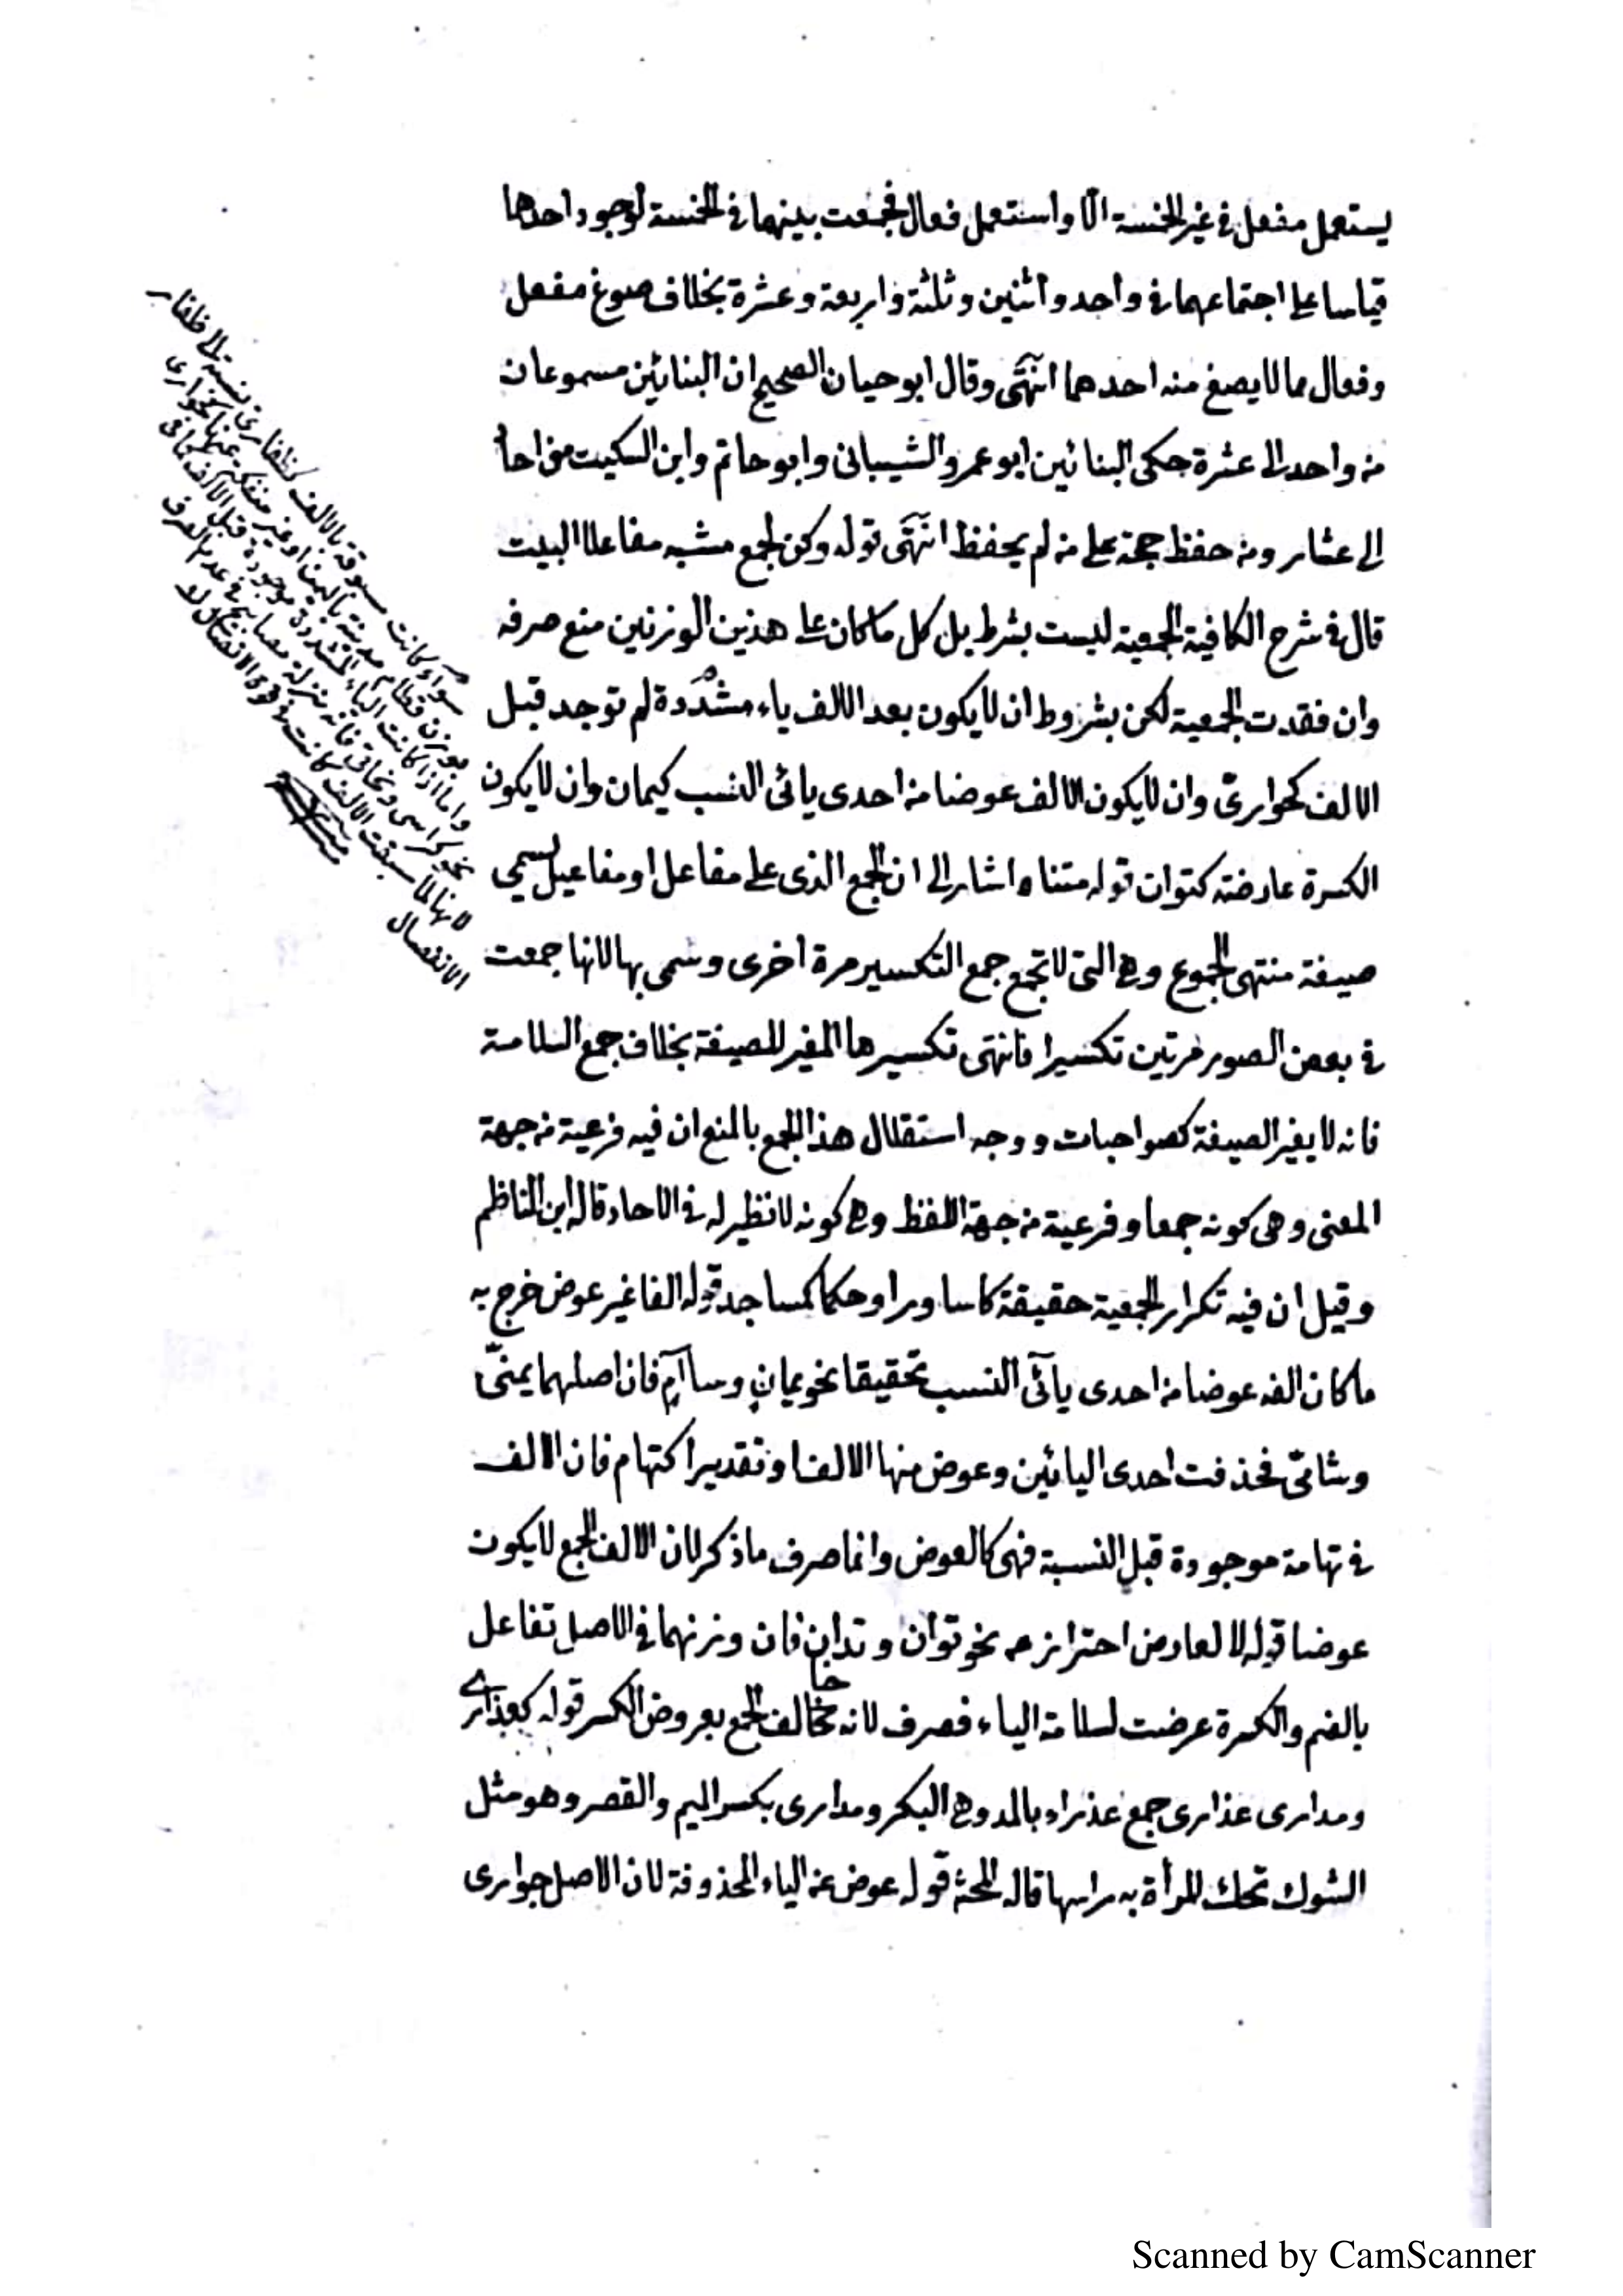 يستعمل مفعل في غير الخمسة الا واستعمل فعال فجمعت بينهما في الخمسة لوجود احدها
قياسا على اجتماعهما في واحد واثنين وثلثة واربعة وعشرة بخلاف صوغ مفعل
وفعال مما لا يصغ منه احدهما انتهى وقال ابو حيان الصحيح ان البنائين مسموعان
من واحد الى عشرة حكى البنائين ابو عمرو الشيباني وابو حاتم وابن السكيت من احاد
الى عشار ومن حفظ حجة على من لم يحفظ انتهى قوله وكن لجمع مشبه مفاعلا البيت
قال في شرح الكافية الجمعية ليست بشرط بل كل ما كان على هذين الوزنين منع صرفه
وان فقدت الجمعية لكن بشروط ان لا يكون بعد الالف ياء مشددة لم توجد قبل
الالف كحواريّ وان لا يكون الالف عوضا من احدى يائى النسب كيمان وان لا يكون
الكسرة عارضة كتوان قوله متناه اشار الى ان الجمع الذى على مفاعل او مفاعيل يسمى
صيغة منتهى الجموع وهى التى لا تجمع جمع التكسير مرة اخرى وسمى بها لانها جمعت
في بعض الصور مرتين تكسيرا فانتهى تكسيرها المغير للصيغة بخلاف جمع السلامة
فانه لا يغير الصيغة كصواحبات ووجه استقلال هذا الجمع بالمنع ان فيه فرعية من جهة
المعنى وهى كونه جمعا وفرعية من جهة اللفظ وهى كونه لا نظير له في الاحاد قاله ابن الناظم
وقيل ان فيه تكرار الجمعية حقيقة كاساور او حكما كمساجد قوله الفا غير عوض خرج به
ما كان الفه عوضا من احدى يائى النسب تحقيقا نحو يمانٍ وشاآمٍ فان اصلهما يمنىّ
وشامىّ فحذفت احدى اليائين وعوض منها الالف او تقديرا كتهام فان الالف
في تهامة موجودة قبل النسبة فهى كالعوض وانما صرف ما ذكر لان الالف الجمع لا يكون
عوضا قوله لا لعارض احترازه نحو توان وتدان فان وزنهما في الاصل تفاعل
بالضم والكسرة عرضت لسلامة الياء فصرف لانه خالف الجمع بعروض الكسر قوله كعذارى
ومدارى عذارى جمع عذراء بالمد وهى البكر ومدارى بكسر الميم والقصر وهو مثل
الشوك تحك المرأة به راسها قاله المحشى قوله عوض عن الياء المحذوفة لان الاصل جوارى
سواء كانت مسبوقة بالالف كظفارى نسبة الى ظفار
بوزن قطام مدينة باليمن او غير منفكة عنها كحوارى
واما اذا كانت الياء المشددة موجودة قبل الالف كما في
نحو كراسى وبخاتى فانه بمنزلة مصابيح في عدم الصرف
لانها لما سبقت الالف كانت في قوة الاتصال لا
الانفصال
Scanned by CamScanner